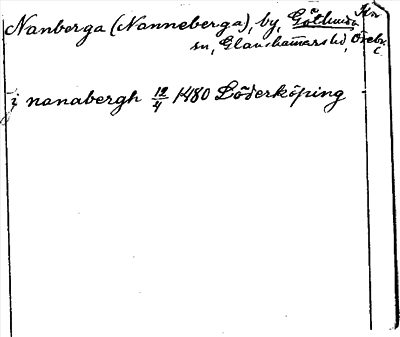 Nanberga (Nanneberga), by, Götlunda
sn, Glanshammars hd, Örebr.
i nanabergh 12/4 1480 Söderköping